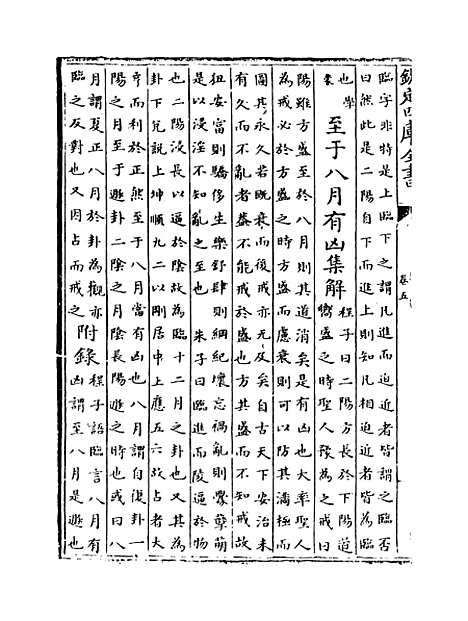 欽定四庫全書 卷五
臨字非特是上臨下之謂凡進而迫近者皆謂之臨否
曰然此是二陽自下而進上則知凡相迫近者皆為臨
也學蒙
至于八月有凶集解
程子曰二陽方長於下陽道
嚮盛之時聖人豫為之戒曰
陽雖方盛至於八月則其道消矣是有凶也大率聖人
為戒必於方盛之時方盛而慮衰則可以防其滿極而
圖其永久若既衰而後戒亦无及矣自古天下安治未
有久而不亂者蓋不能戒於盛也方其盛而不知戒故
狃安富則驕侈生樂舒肆則綱紀壞忘禍亂則釁孽萌
是以浸淫不知亂之至 朱子曰臨進而陵逼於物
也二陽浸長以逼於陰故為臨十二月之卦也又其為
卦下兌說上坤順九二以剛居中上應五六故占者大
亨而利於正然至于八月當有凶也八月謂自復卦一
陽之月至于遯卦二陰之月陰長陽遯之時也或曰八
月謂夏正八月於卦為觀亦
臨之反對也又因占而戒之
附錄
程子語臨言八月有
凶謂至八月是遯也